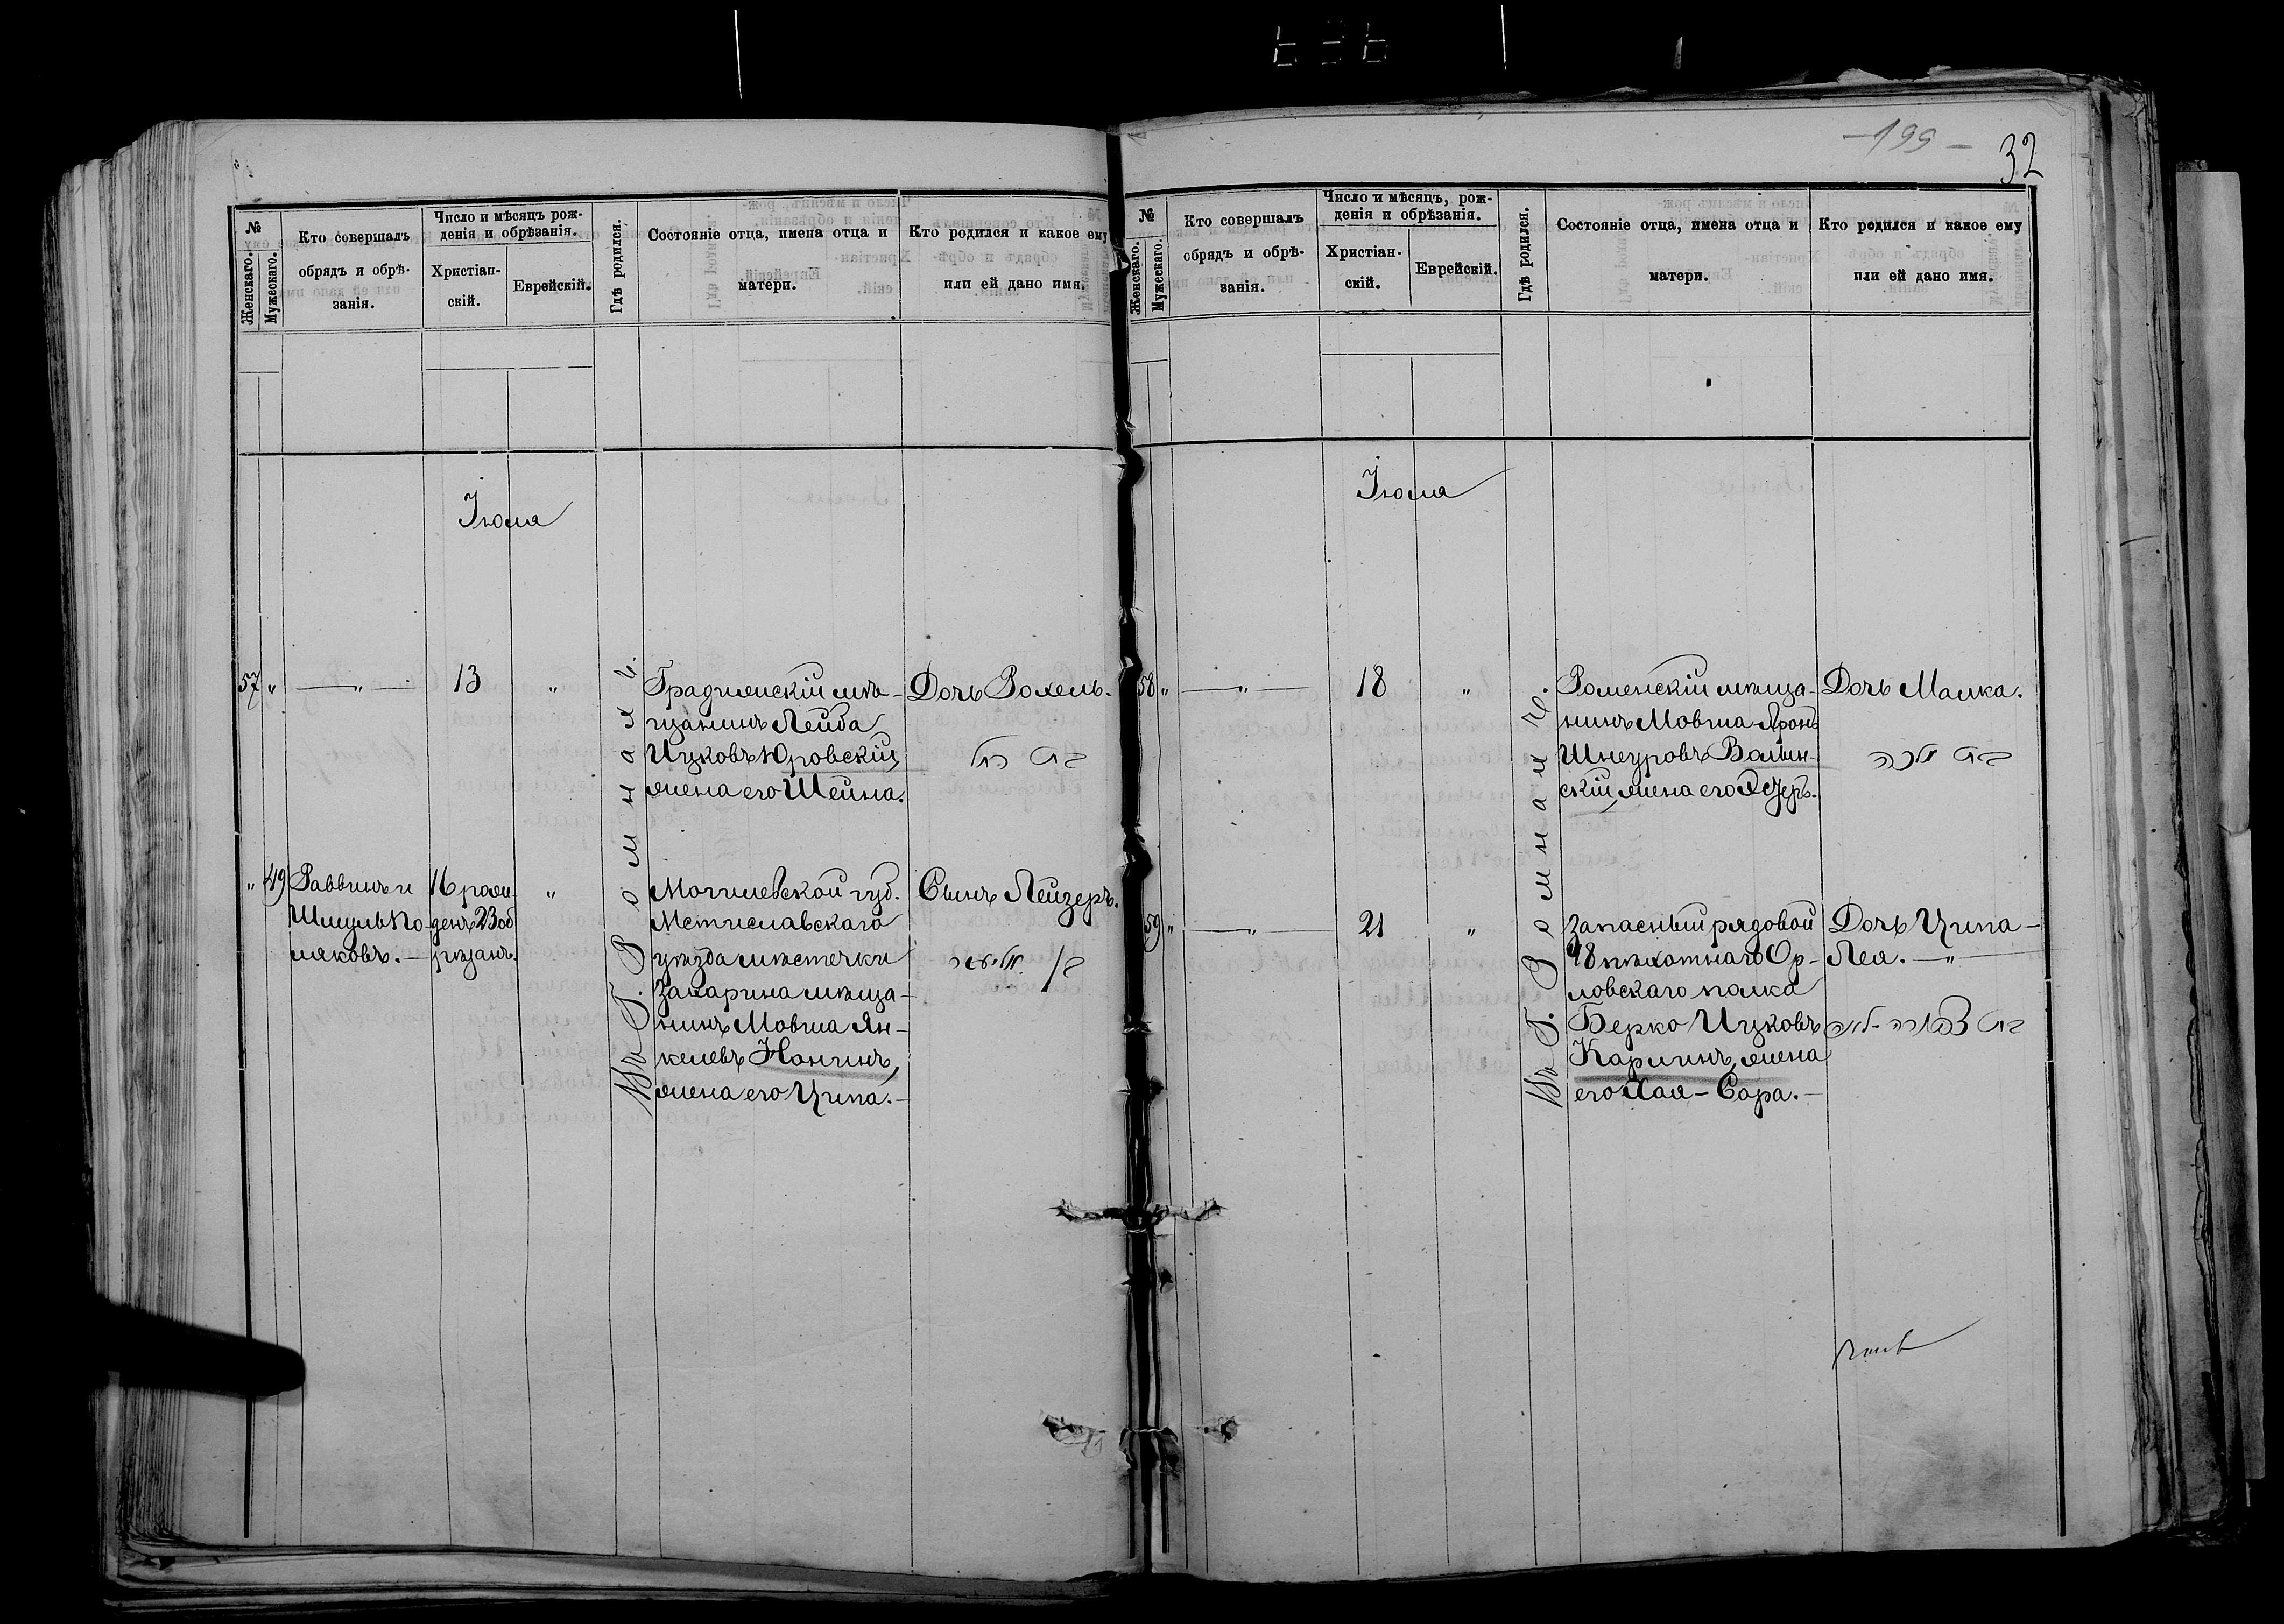 -199-
32
№
Женскаго.
Мужескаго.
Кто совершалъ
обрядъ и обрѣ-
занія.
Число и мѣсяцъ рож-
денія и обрѣзанія.
Христіан-
скій.
Еврейскій.
Гдѣ родился.
Состояніе отца, имена отца и
матери.
Кто родился и какое ему
или ей дано имя.
Іюля
57 " —"— 13 "
Въ Г. Ромнахъ
Градижскій мѣ-
щанинъ Лейба
Ицковъ Юровскій,
жена его Шейна.
Дочь Рохель.
בת רחל
" 49
Раввинъ и
Шмуль По-
ляковъ.—
16 рож-
денъ 23 об
рѣзанъ.
"
Могилевской губ.
Мстиславскаго
уѣзда мѣстечка
Захарина мѣща-
нинъ Мовша Ян-
келевъ Ханинъ,
жена его Ципа.—
Сынъ Лейзеръ.
בן אליעזר
№
Женскаго.
Мужескаго.
Кто совершалъ
обрядъ и обрѣ-
занія.
Число и мѣсяцъ, рож-
денія и обрѣзанія.
Христіан-
скій.
Еврейскій.
Гдѣ родился.
Состояніе отца, имена отца и
матери.
Кто родился и какое ему
или ей дано имя.
Іюля
58 " —"— 18 "
Въ Г. Ромнахъ
Роменскій мѣща-
нинъ Мовша-Аронъ
Шнеуровъ Волын-
скій, жена его
Дочь Малка.
בת מלכה
59 " —"— 21 "
Запасный рядовой
пѣхотнаго Ор-
ловскаго полка
Берко Ицковъ
Карлинъ, жена
его Хая-Сора.—
Дочь Ципа-
Лея. —"—
בת צפורה-לאה